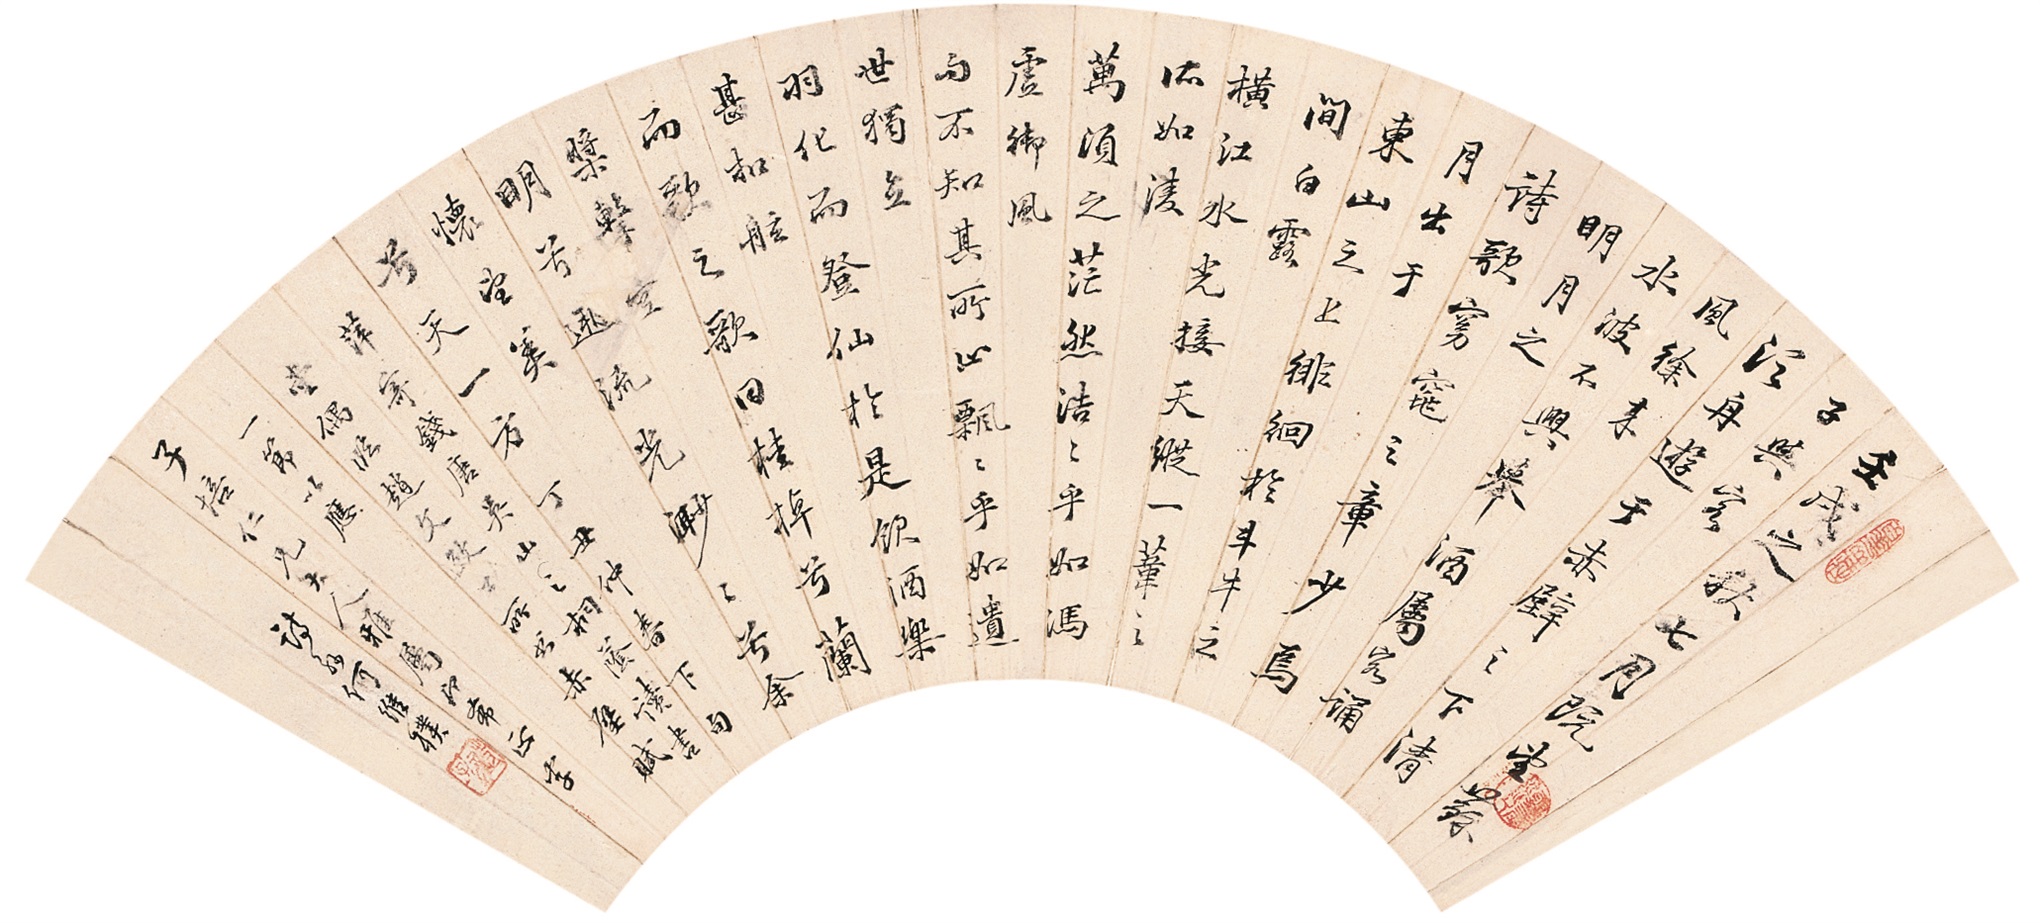 壬戌之秋七月既望蘇
子與客
泛舟遊于赤壁之下清
風徐來
水波不興舉酒屬客誦
明月之
詩歌窈窕之章少焉
月出于
東山之上徘徊於斗牛之
間白露
橫江水光接天縱一葦之
所如凌
萬頃之茫然浩〻乎如馮
虛御風
而不知其所止飄〻乎如遺
世獨立
羽化而登仙於是飲酒樂
甚扣舷
而歌之歌曰桂棹兮蘭
槳擊空
明兮遡流光渺〻兮余
懷望美
兮天一方 丁丑仲春下旬
萍寄錢唐吳山之桐蔭讀書
堂偶臨趙文敏公所書赤壁賦
一節以應
子培仁兄大人雅屬即希正字
詩孫何維樸